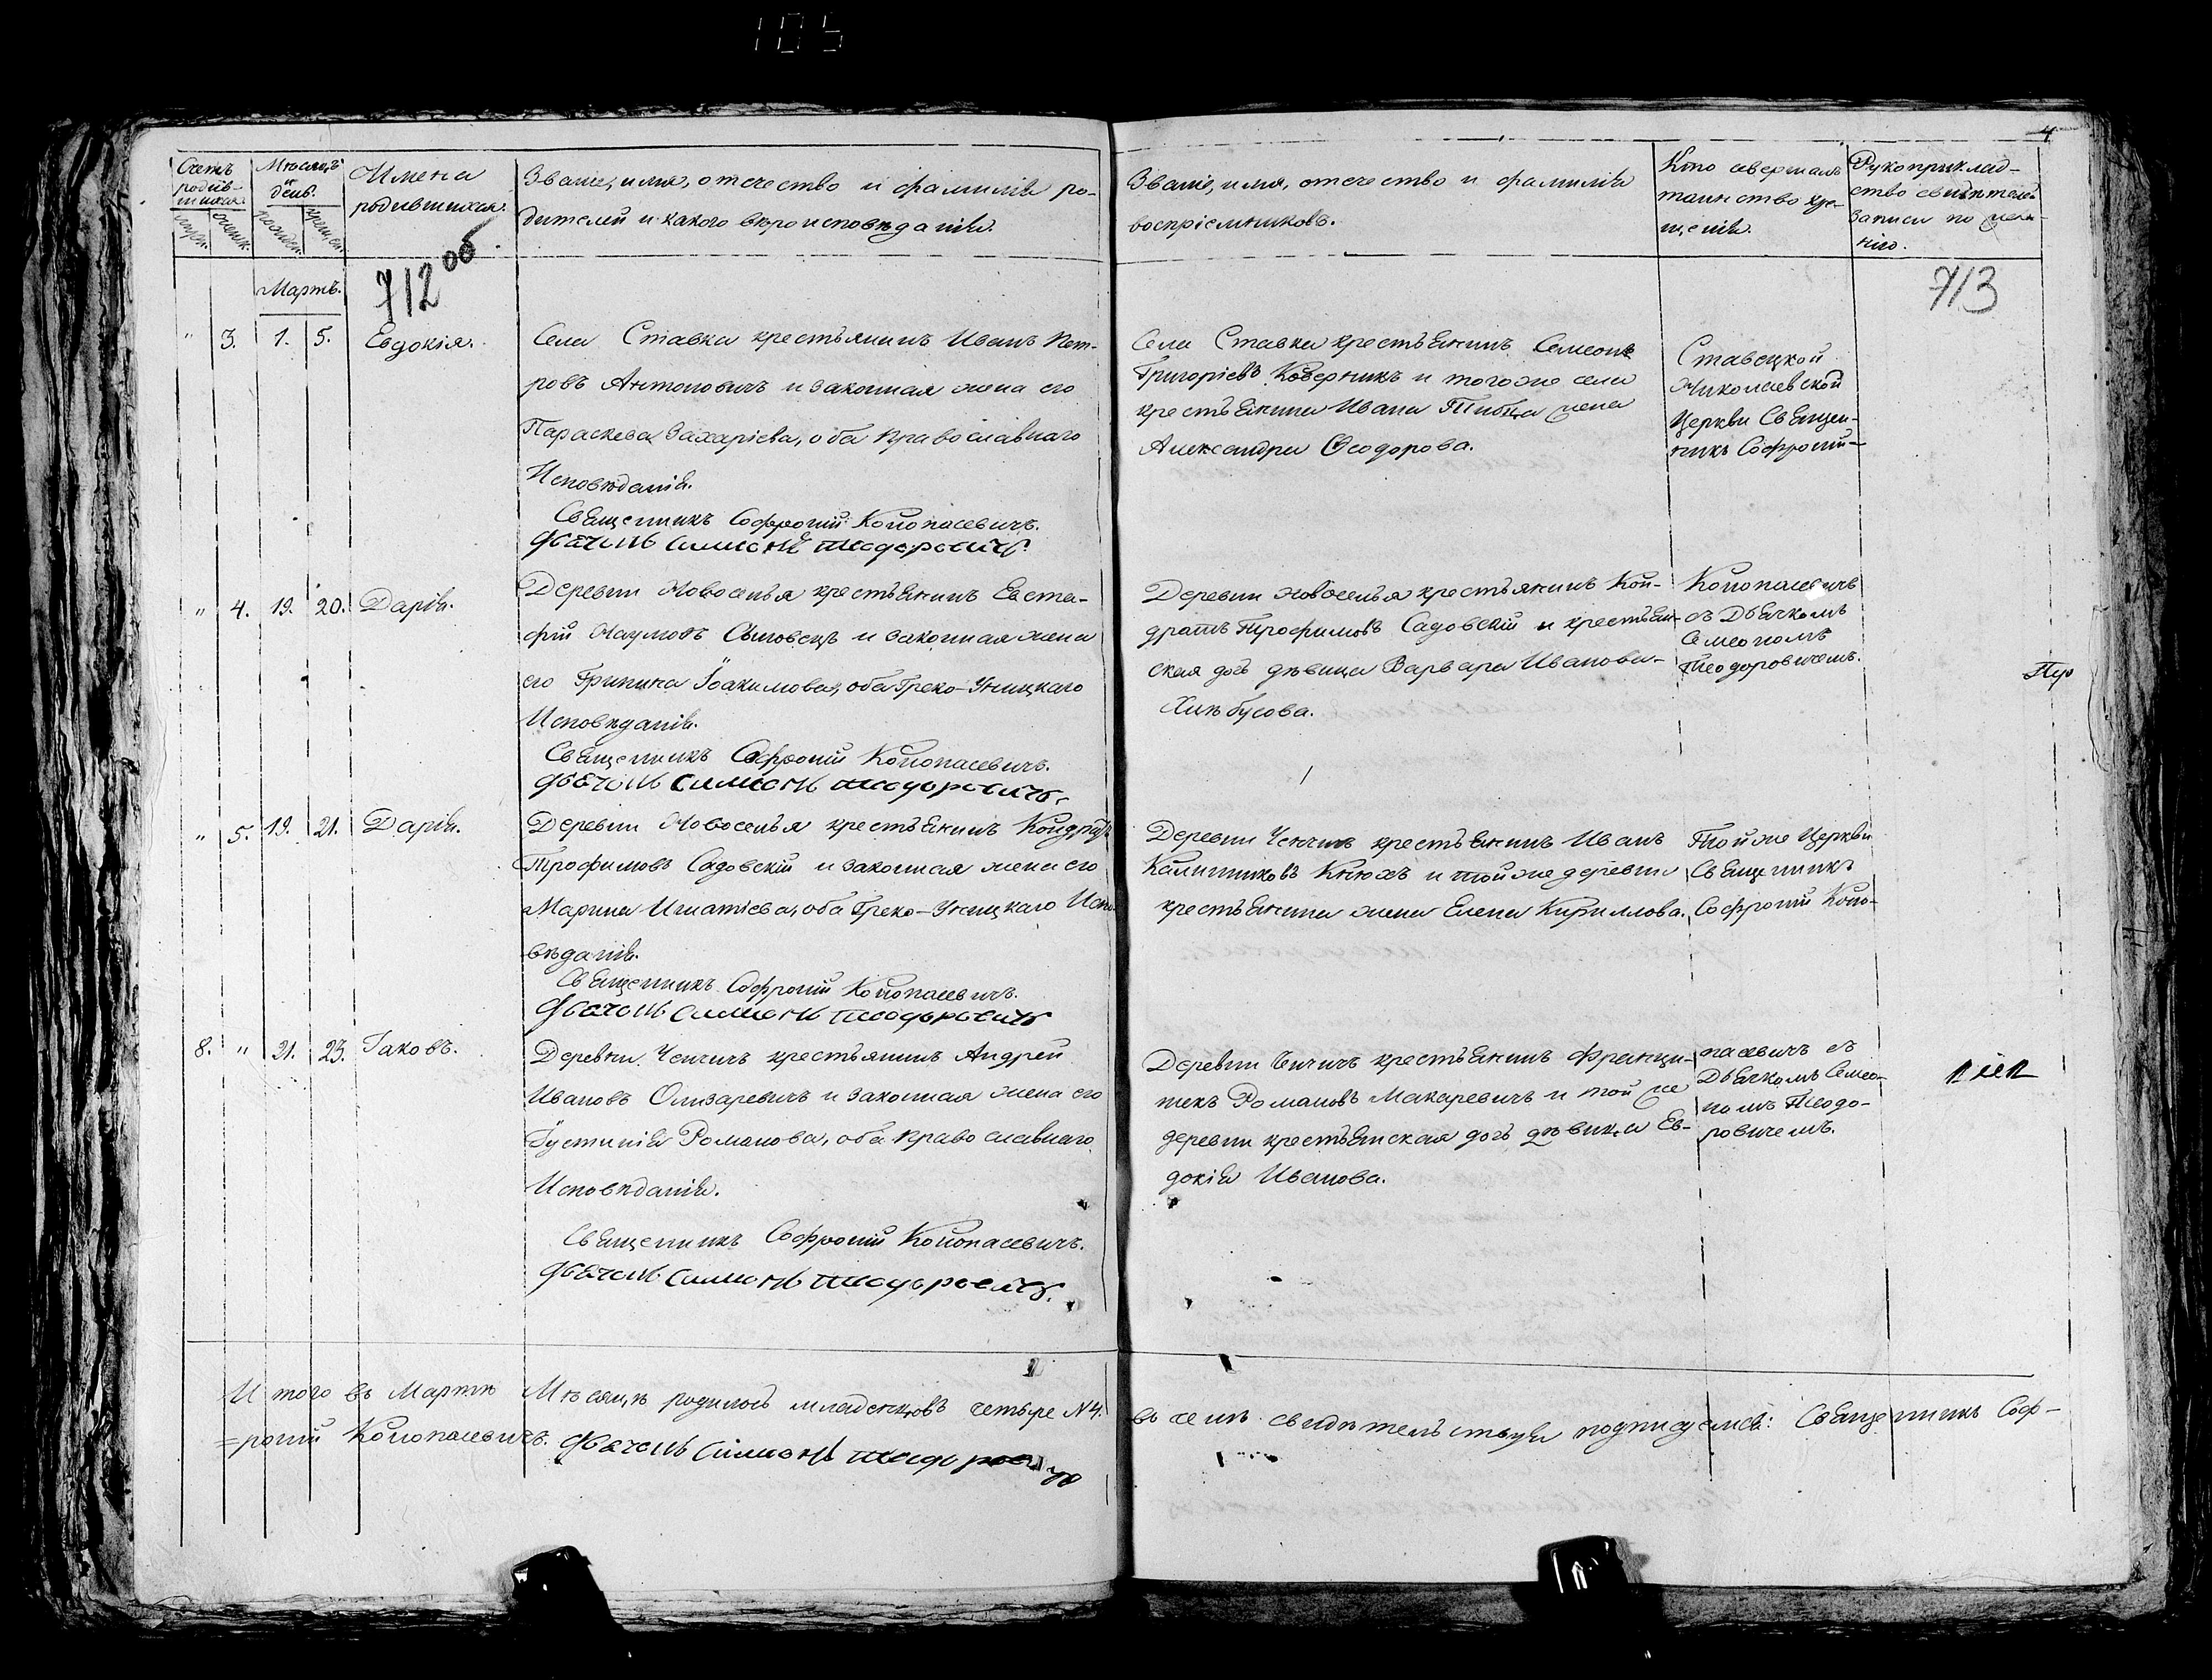 105
4
Счетъ
родив-
шихся.
Мѣсяцъ
и
день.
Имена
родившихся.
Званіе, имя, отчество и фамилія ро-
дителей и какого вѣроисповѣданія.
Званіе, имя, отчество и фамилія
воспріемниковъ.
Кто совершалъ
таинство кре-
щенія.
Рукоприклад-
ство свидѣтелей
записи по жела-
нію.
712 об.
713
Мартъ.
" 3. 1. 5. Евдокія.
Села Ставка крестьянинъ Иванъ Пет-
ровъ Антоновичъ и законная жена его
Параскева Захаріева, оба православнаго
Исповѣданія.
Священникъ Софроній Конопасевичъ.
Дьячокъ Симеонъ Теодоровичъ.
Села Ставка крестьянинъ Семеонъ
Григоріевъ Коверникъ и того же села
крестьянина Ивана жена
Александра Ѳеодорова.
Ставецкой
Николаевской
Церкви Священ-
никъ Софроній
" 4. 19. 20. Дарія.
Деревни Новоселья крестьянинъ Евста-
фій Наумовъ и законная жена
его Грипина Іоакимова, оба Греко-Уницкаго
Исповѣданія.
Священникъ Софроній Конопасевичъ.
Дьячокъ Симеонъ Теодоровичъ.
Деревни Новоселья крестьянинъ Кон-
дратъ Трофимовъ Садовскій и крестьян-
ская дочь дѣвица Варвара Иванова
Конопасевичъ
съ Дьячкомъ
Семеономъ
Теодоровичемъ.
" 5. 19. 21. Дарія.
Деревни Новоселья крестьянинъ Кондратъ
Трофимовъ Садовскій и законная жена его
Марина Игнатіева, оба Греко-Уницкаго Испо-
вѣданія.
Священникъ Софроній Конопасевичъ.
Дьячокъ Симеонъ Теодоровичъ
Деревни Ченчичъ крестьянинъ Иванъ
Калинниковъ и той же деревни
крестьянина жена Елена Кириллова.
Той же Церкви
Священникъ
Софроній Коно-
8. " 21. 23. Іаковъ.
Деревни Ченчичъ крестьянинъ Андрей
Ивановъ Олизаревичъ и законная жена его
Іустинія Романова, оба православнаго
Исповѣданія.
Священникъ Софроній Конопасевичъ.
Дьячокъ Симеонъ Теодоровичъ.
Деревни Ченчичъ крестьянинъ Франци-
шекъ Романовъ Макаревичъ и той же
деревни крестьянская дочь дѣвица Ев-
докія Иванова.
пасевичъ съ
Дьячкомъ Семео-
номъ Теодо-
ровичемъ.
Итого въ Мартѣ Мѣсяцѣ родилось младенцовъ четыре N 4. въ чемъ свидѣтельствуя подписуемся: Священникъ Соф-
=роній Конопасевичъ. Дьячокъ Симеонъ